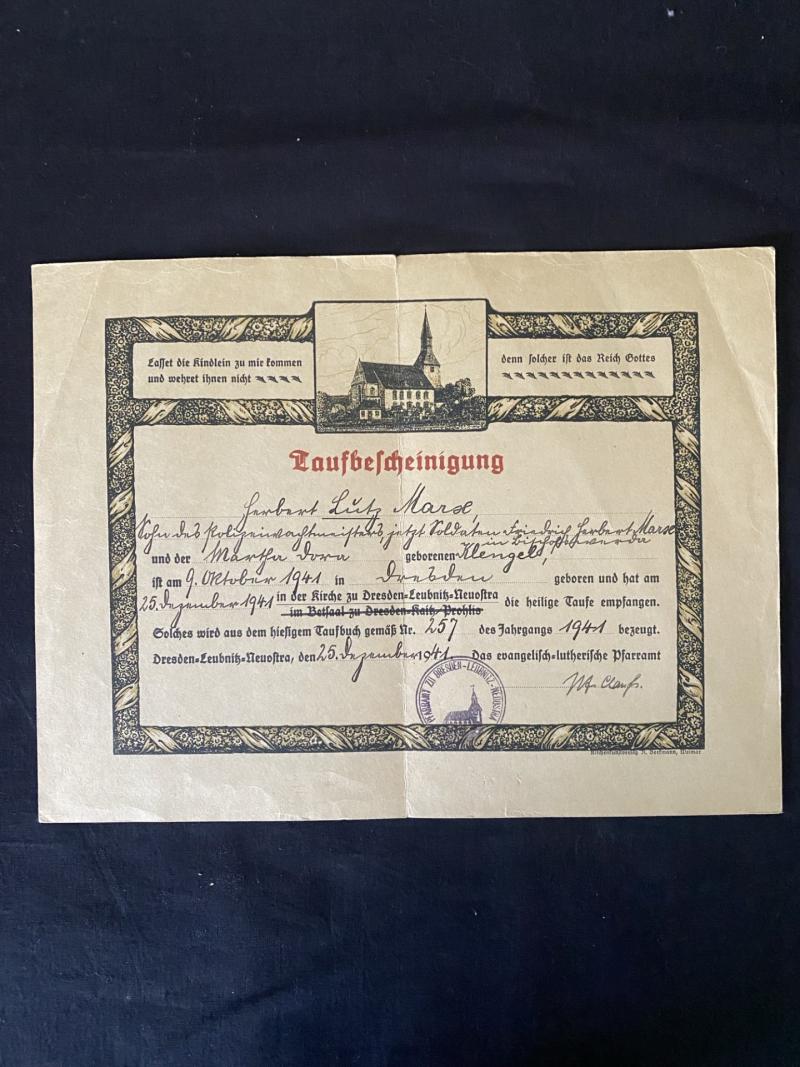 Lasset die Kindlein zu mir kommen
und wehret ihnen nicht
denn solcher ist das Reich Gottes
Taufbescheinigung
Herbert Lutz Marx,
Sohn des Polizeiwachtmeisters jetzt Soldaten Friedrich Herbert Marx
in Bischofswerda
und der Martha Dora geborenen Klengel,
ist am 9. Oktober 1941 in Dresden geboren und hat am
25. Dezember 1941 in der Kirche zu Dresden-Leubnitz-Neuostra
im Betsaal zu Dresden-Kaitz-Prohlis
die heilige Taufe empfangen.
Solches wird aus dem hiesigem Taufbuch gemäß Nr. 257 des Jahrgangs 1941 bezeugt.
Dresden-Leubnitz-Neuostra, den 25. Dezember 1941. Das evangelisch-lutherische Pfarramt
PFARRAMT ZU DRESDEN-LEUBNITZ-NEUOSTRA
Kirchenkunstverlag, Weimar